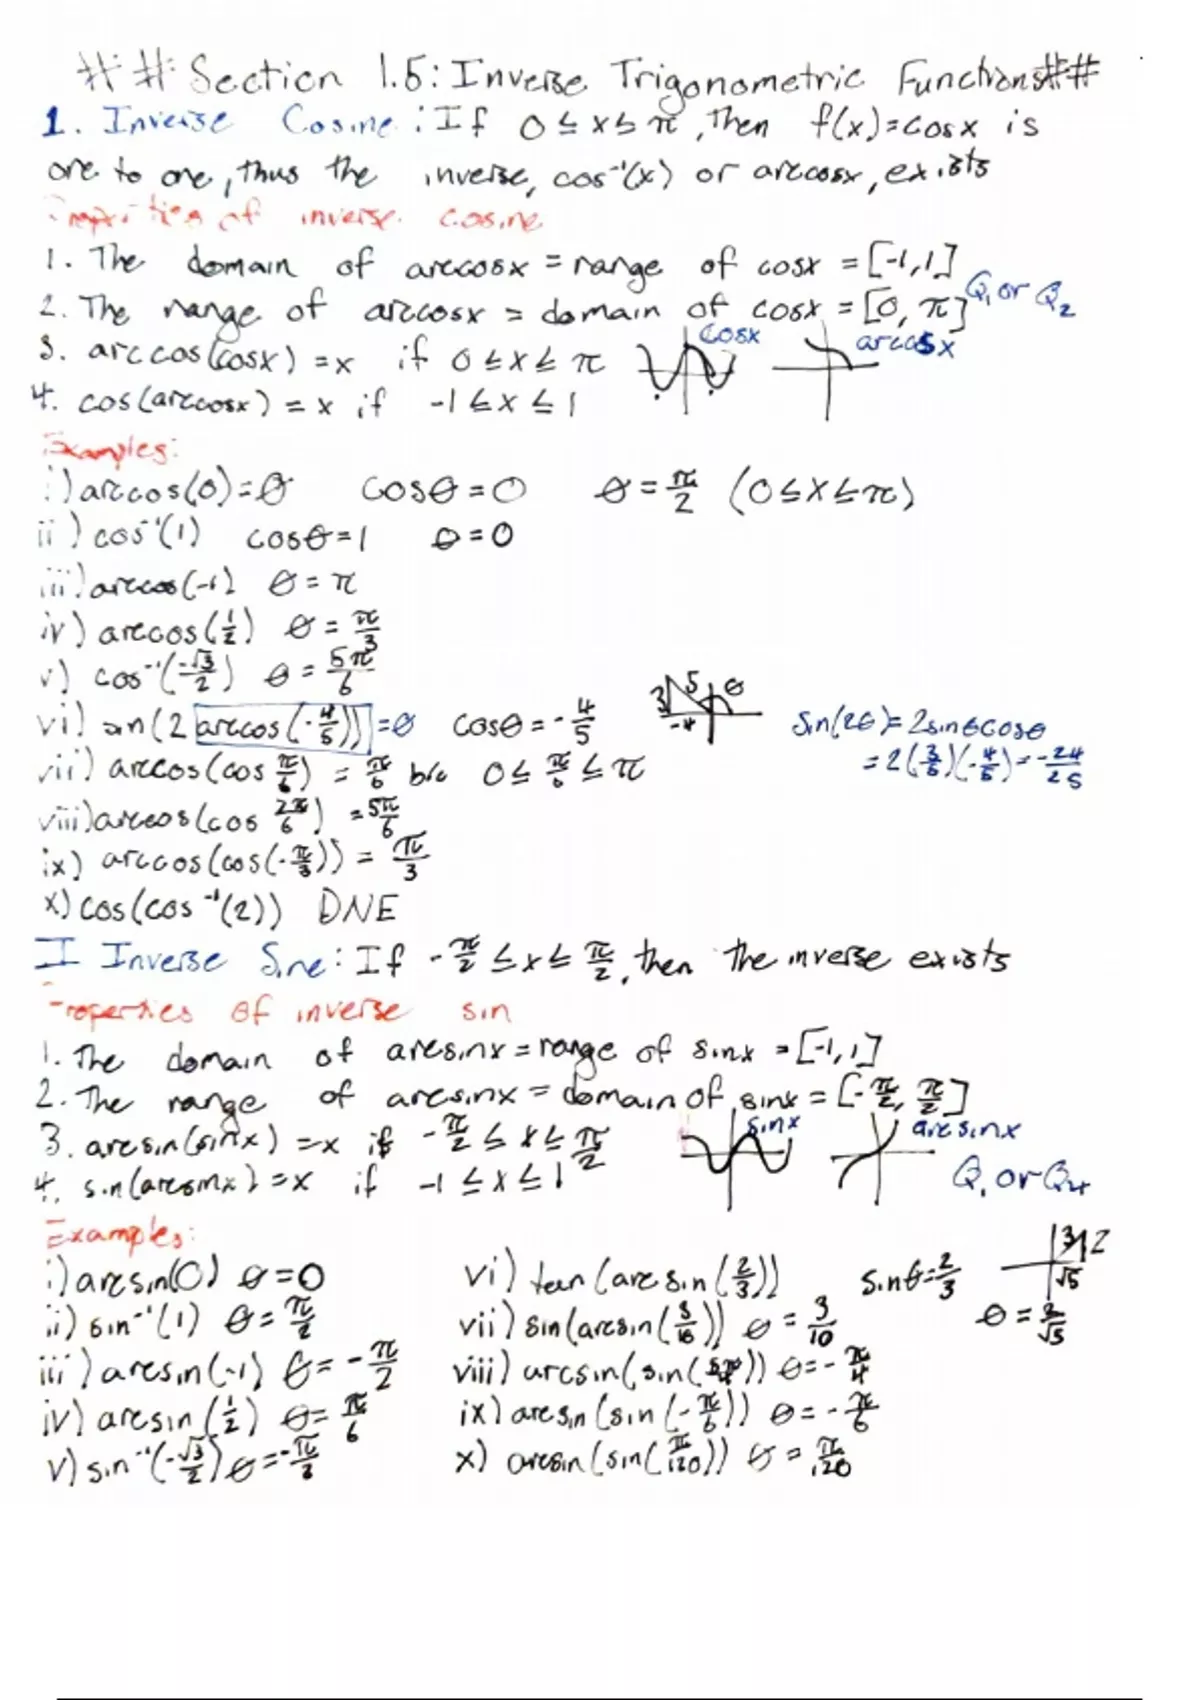 ## Section 1.5: Inverse Trigonometric Functions##
1. Inverse Cosine: If 0≤x≤π, then f(x)=cosx is
one to one, thus the inverse, cos⁻¹(x) or arccosx, exists
Properties of inverse cosine
1. The domain of arccosx = range of cosx = [-1,1]
2. The range of arccosx = domain of cosx = [0, π] Q₁ or Q₂
3. arccos(cosx) = x if 0≤x≤π cosx arccosx
4. cos(arccosx) = x if -1≤x≤1
Examples:
i) arccos(0)=θ cosθ=0 θ=π/2 (0≤x≤π)
ii) cos⁻¹(1) cosθ=1 θ=0
iii) arccos(-1) θ=π
iv) arccos(1/2) θ=π/3
v) cos⁻¹(-√3/2) θ=5π/6
vi) sin(2 arccos(-4/5))=θ cosθ=-4/5 3 5 θ -4 Sin(2θ)=2sinθcosθ
=2(3/5)(-4/5)=-24/25
vii) arccos(cos π/6) = π/6 b/c 0≤π/6≤π
viii) arccos(cos /6) = 5π/6
ix) arccos(cos(-π/3)) = π/3
x) cos(cos⁻¹(2)) DNE
I Inverse Sine: If -π/2≤x≤π/2, then the inverse exists
Properties of inverse sin
1. The domain of arcsinx = range of sinx = [-1,1]
2. The range of arcsinx = domain of sinx = [-π/2, π/2]
3. arcsin(sinx) = x if -π/2≤x≤π/2 sinx arcsinx
4. sin(arcsinx) = x if -1≤x≤1 Q₁ or Q₄
Examples:
i) arcsin(0) θ=0
ii) sin⁻¹(1) θ=π/2
iii) arcsin(-1) θ=-π/2
iv) arcsin(1/2) θ=π/6
v) sin⁻¹(-√3/2) θ=-π/3
vi) tan(arcsin(2/3)) sinθ=2/3 3 2 √5
θ=2/√5
vii) sin(arcsin(3/10)) θ=3/10
viii) arcsin(sin()) θ=-π/4
ix) arcsin(sin(-π/6)) θ=-π/6
x) arcsin(sin(π/120)) θ=π/120